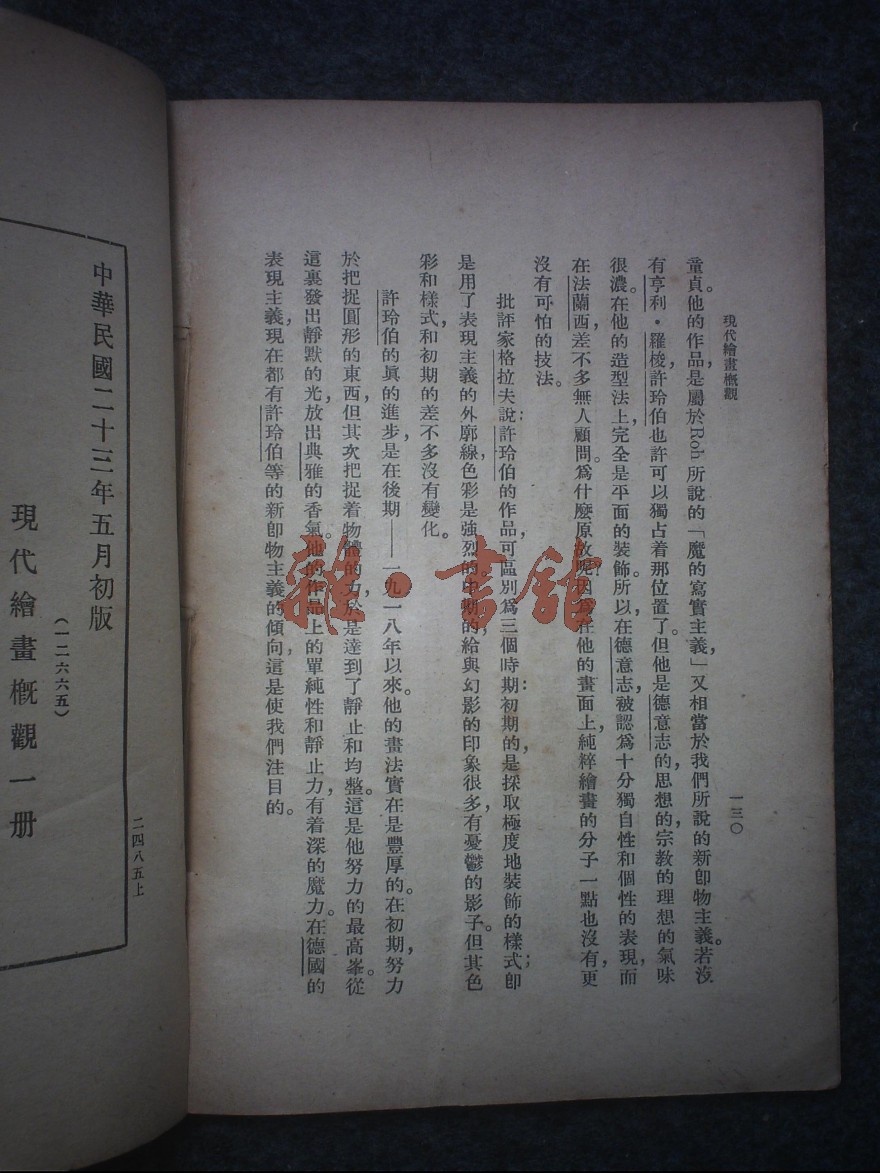 現代繪畫概觀
一三〇
童貞。他的作品,是屬於Roh所說的「魔的寫實主義,」又相當於我們所說的新卽物主義。若沒
有亨利・羅梭,許玲伯也許可以獨占着那位置了。但他是德意志的,思想的,宗教的理想的氣味
很濃。在他的造型法上,完全是平面的裝飾。所以在德意志,被認爲十分獨自性和個性的表現,而
在法蘭西,差不多無人顧問。爲什麼原故呢?因爲在他的畫面上,純粹繪畫的分子一點也沒有,更
沒有可怕的技法。
批評家格拉夫說:許玲伯的作品,可區別爲三個時期:初期的,是採取極度地裝飾的樣式;卽
是用了表現主義的外廓線,色彩是強烈的。中期的,給與幻影的印象很多,有憂鬱的影子。但其色
彩和樣式,和初期的差不多沒有變化。
許玲伯的眞的進步,是在後期——一九一八年以來。他的畫法實在是豐厚的。在初期,努力
於把捉圓形的東西,但其次把捉着物體的力,於是達到了靜止和均整。這是他努力的最高峯。從
這裏發出靜默的光,放出典雅的香氣。他的作品上的單純性和靜止力,有着深的魔力。在德國的
表現主義,現在都有許玲伯等的新卽物主義的傾向,這是使我們注目的。
二四八五上
中華民國二十三年五月初版
(一二六六五)
現代繪畫概觀一册
雜・書館